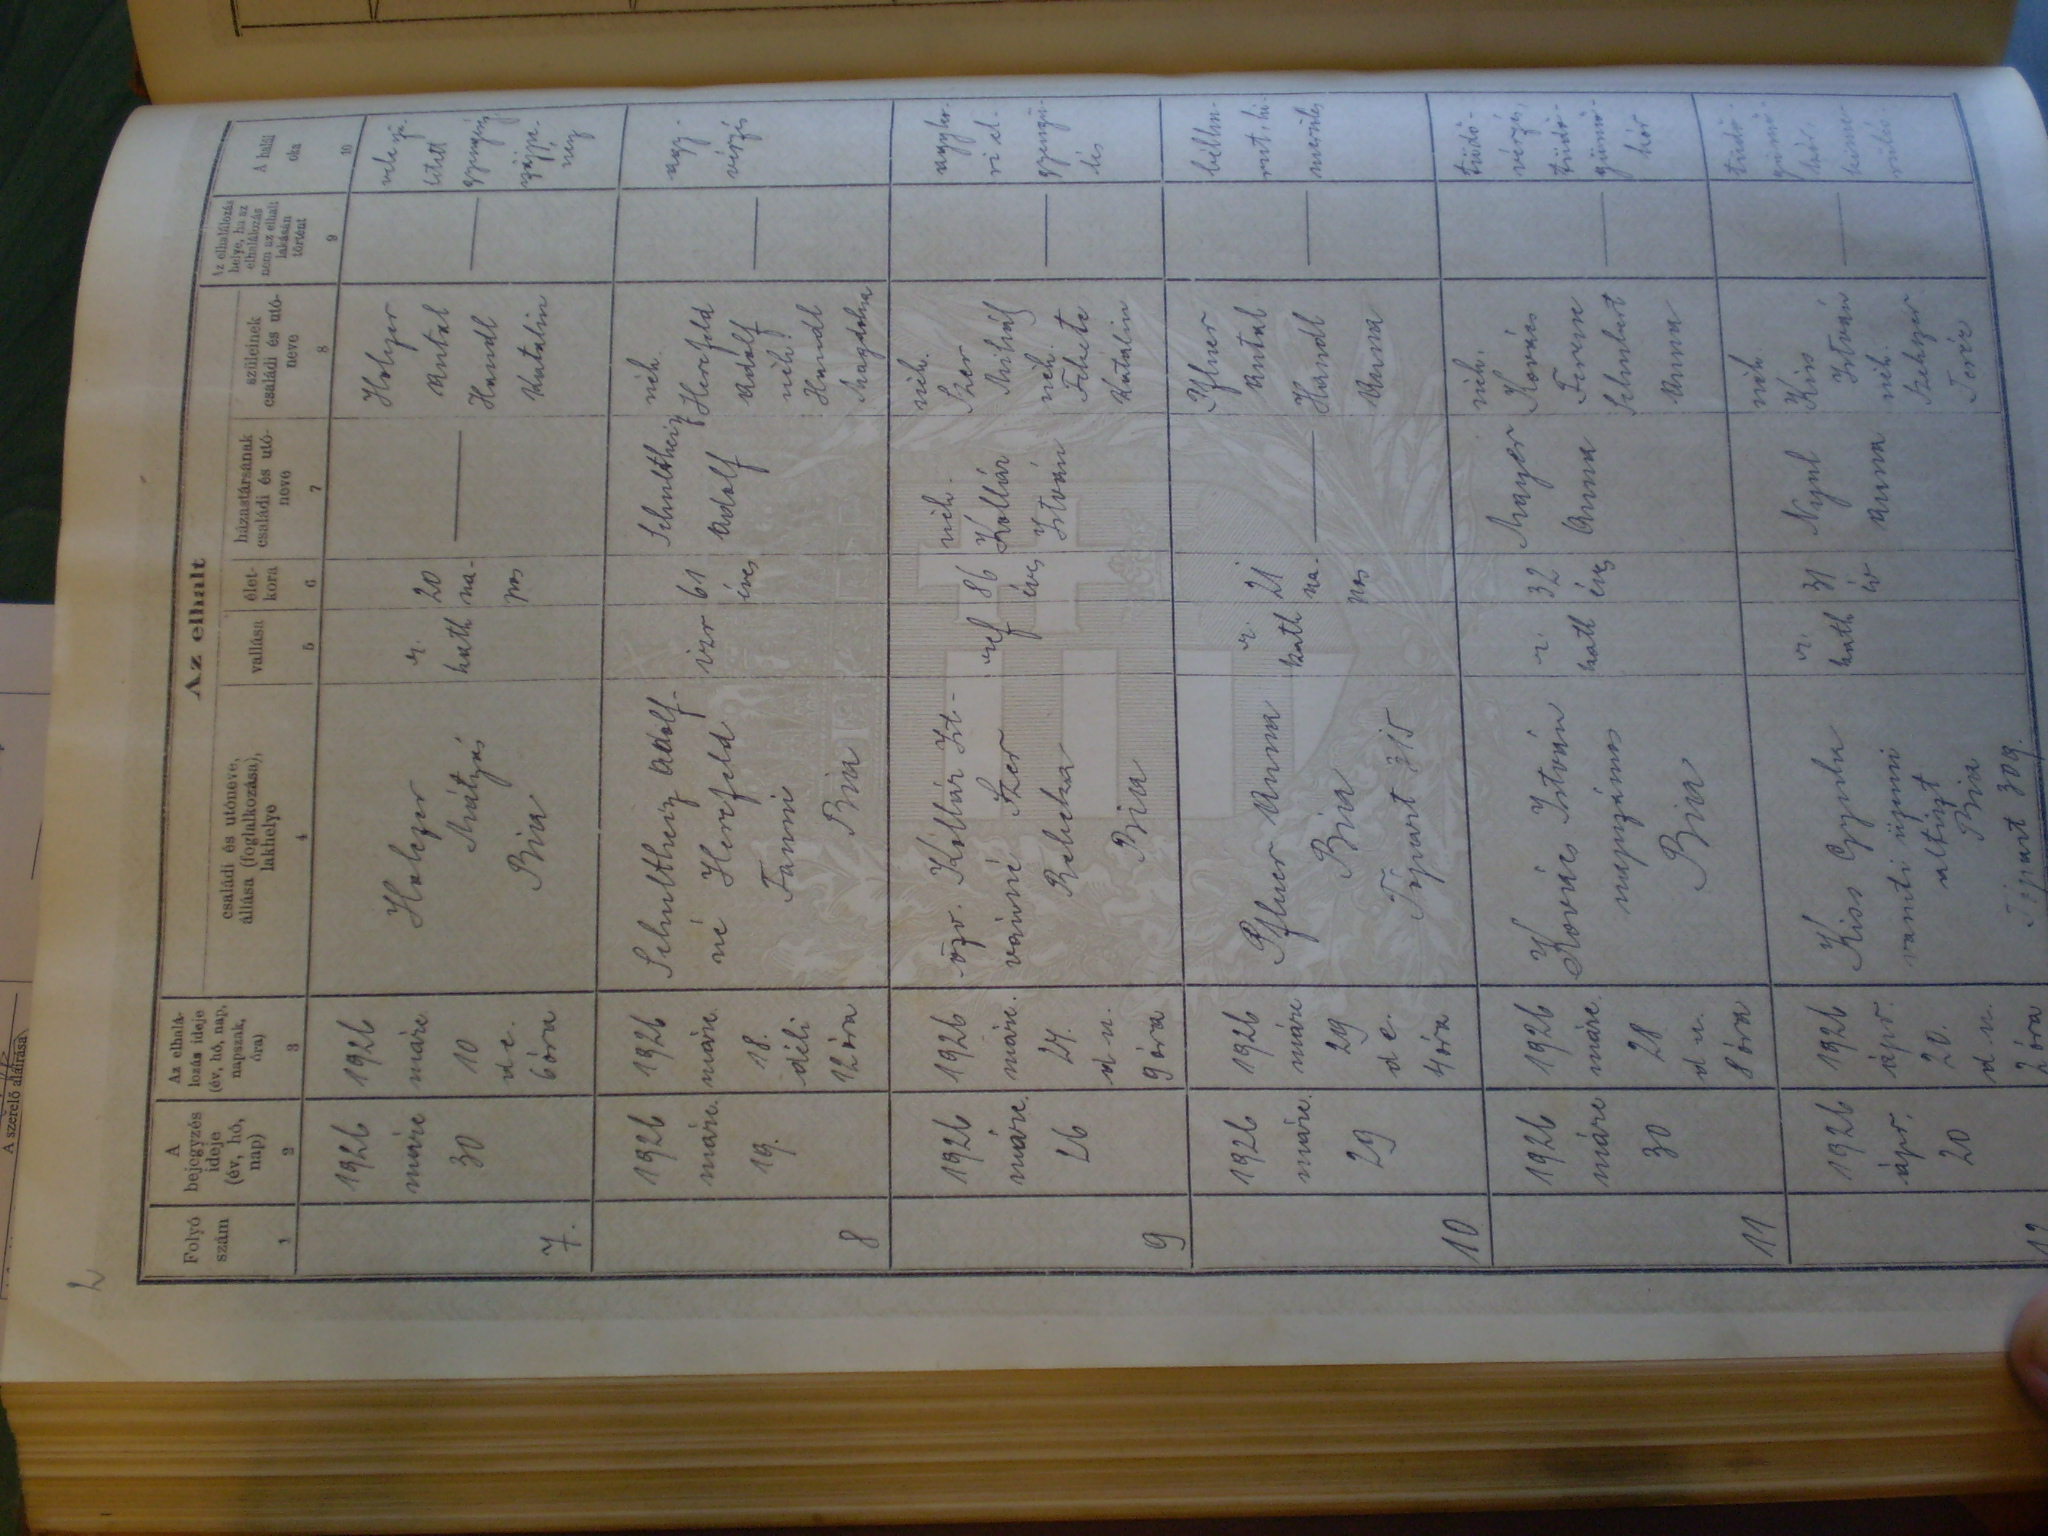 2
Az elhalt
Folyó
szám
A
bejegyzés
ideje
(év, hó,
nap)
Az elhalá-
lozás ideje
(év, hó, nap,
napszak,
óra)
családi és utóneve,
állása (foglalkozása),
lakhelye
vallása
élet-
kora
házastársának
családi és utó-
neve
szüleinek
családi és utó-
neve
Az elhalálozás
helye, ha az
elhalálozás
nem az elhalt
lakásán
történt
A halál
oka
1
2
3
4
5
6
7
8
9
10
7.
1926
márc
30
1926
márc
10
de.
6 óra
Holczer
Mátyás
Bia
r.
kath
20
na-
pos
Holczer
Antal
Handl
Katalin
vele szü-
letett
gyengeség
8
1926
márc.
19.
1926
márc.
18.
déli
12 óra
Schultheiz Adolf-
né Herczfeld
Fanni
Bia
izr
61
éves
Schultheiz
Adolf
néh.
Herczfeld
Adolf
néh.
Handl
Magdolna
agy-
vérzés
9
1926
márc.
26
1926
márc.
24.
du.
9 óra
özv. Kollár Ist-
vánné Szer
Rebeka
Bia
ref
86
éves
néh.
Kollár
István
néh.
Szer
Mihály
néh.
Fekete
Katalin
aggko-
ri el-
gyengü-
lés
10
1926
márc.
29
1926
márc
29
de
4 óra
Pfluer Anna
Bia
Tópart 315
r.
kath
21
na-
pos
Pfluer
Antal
Handl
Anna
bélhu-
rut, ki-
merülés
11
1926
márc
30
1926
márc.
28
du
8 óra
Kovács István
napszámos
Bia
r
kath
32
éves
Mayer
Anna
néh.
Kovács
Ferenc
Schubert
Anna
tüdő-
vérzés,
tüdő-
gümő-
kór
12
1926
ápr.
20
1926
ápr.
20.
du.
2 óra
Kiss Gyula
altiszt
Bia
Tópart 309.
r.
kath
31
év
Nyul
Anna
néh.
Kiss
István
néh.
Teréz
tüdő-
gümő-
kór,
kime-
rülés.
A szerelő aláírása